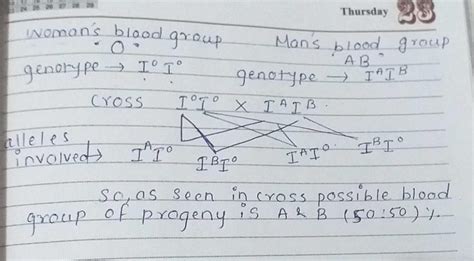 Thursday 23
Woman's blood group Man's blood group
"O" AB
genotype → I⁰ I⁰ genotype → IᴬIᴮ
cross I⁰I⁰ × IᴬIᴮ.
alleles
involved→ IᴬI⁰ IᴮI⁰ IᴬI⁰ IᴮI⁰
So, as seen in cross possible blood
group of progeny is A & B (50:50) %.